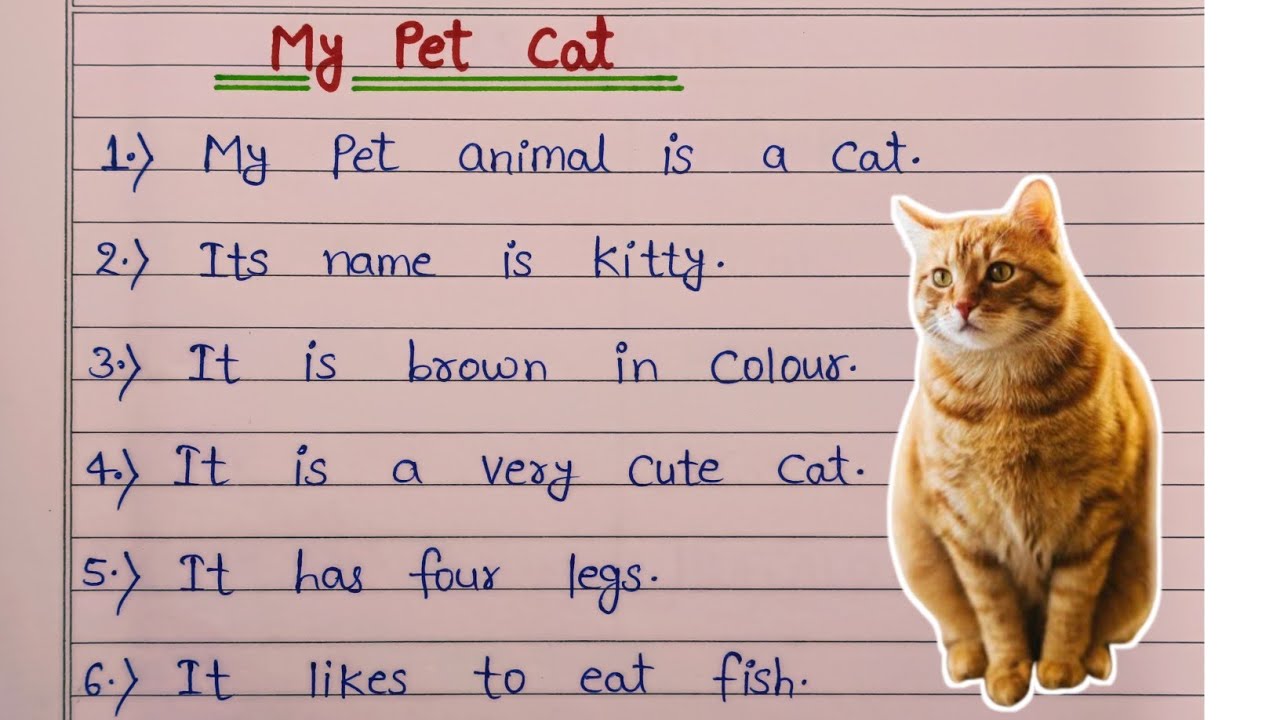 My Pet Cat
1.) My Pet animal is a cat.
2.) Its name is kitty.
3.) It is brown in colour.
4.) It is a very cute cat.
5.) It has four legs.
6.) It likes to eat fish.